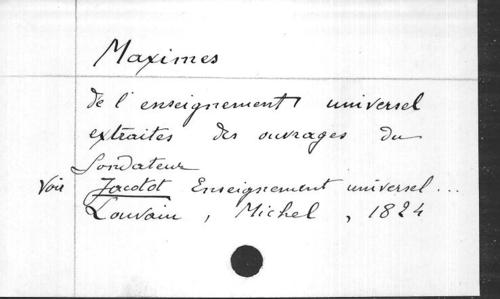 Maximes
de l'enseignement universel
extraites des ouvrages du
fondateur
Voir Jacotot Enseignement universel...
Louvain, Michel, 1824